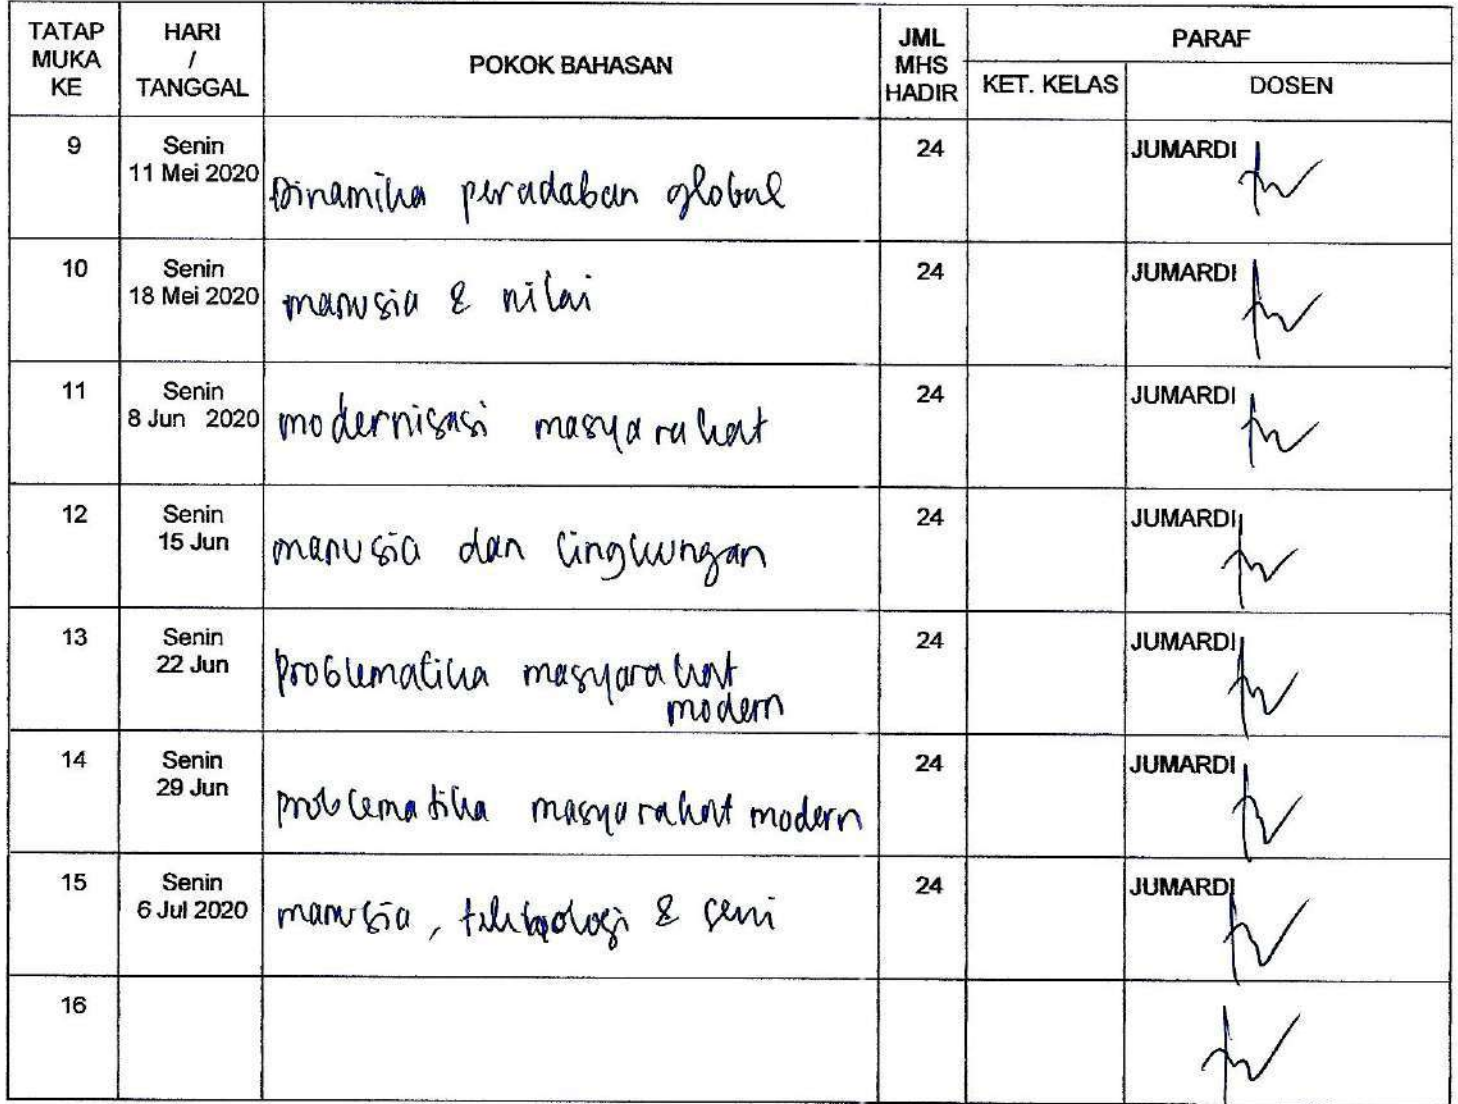 TATAP MUKA KE
HARI / TANGGAL
POKOK BAHASAN
JML MHS HADIR
PARAF
KET. KELAS
DOSEN
9
Senin
11 Mei 2020
Dinamika peradaban global
24
JUMARDI
10
Senin
18 Mei 2020
manusia & nilai
24
JUMARDI
11
Senin
8 Jun 2020
modernisasi masyarakat
24
JUMARDI
12
Senin
15 Jun
manusia dan lingkungan
24
JUMARDI
13
Senin
22 Jun
problematika masyarakat
modern
24
JUMARDI
14
Senin
29 Jun
problematika masyarakat modern
24
JUMARDI
15
Senin
6 Jul 2020
manusia, teknologi & seni
24
JUMARDI
16